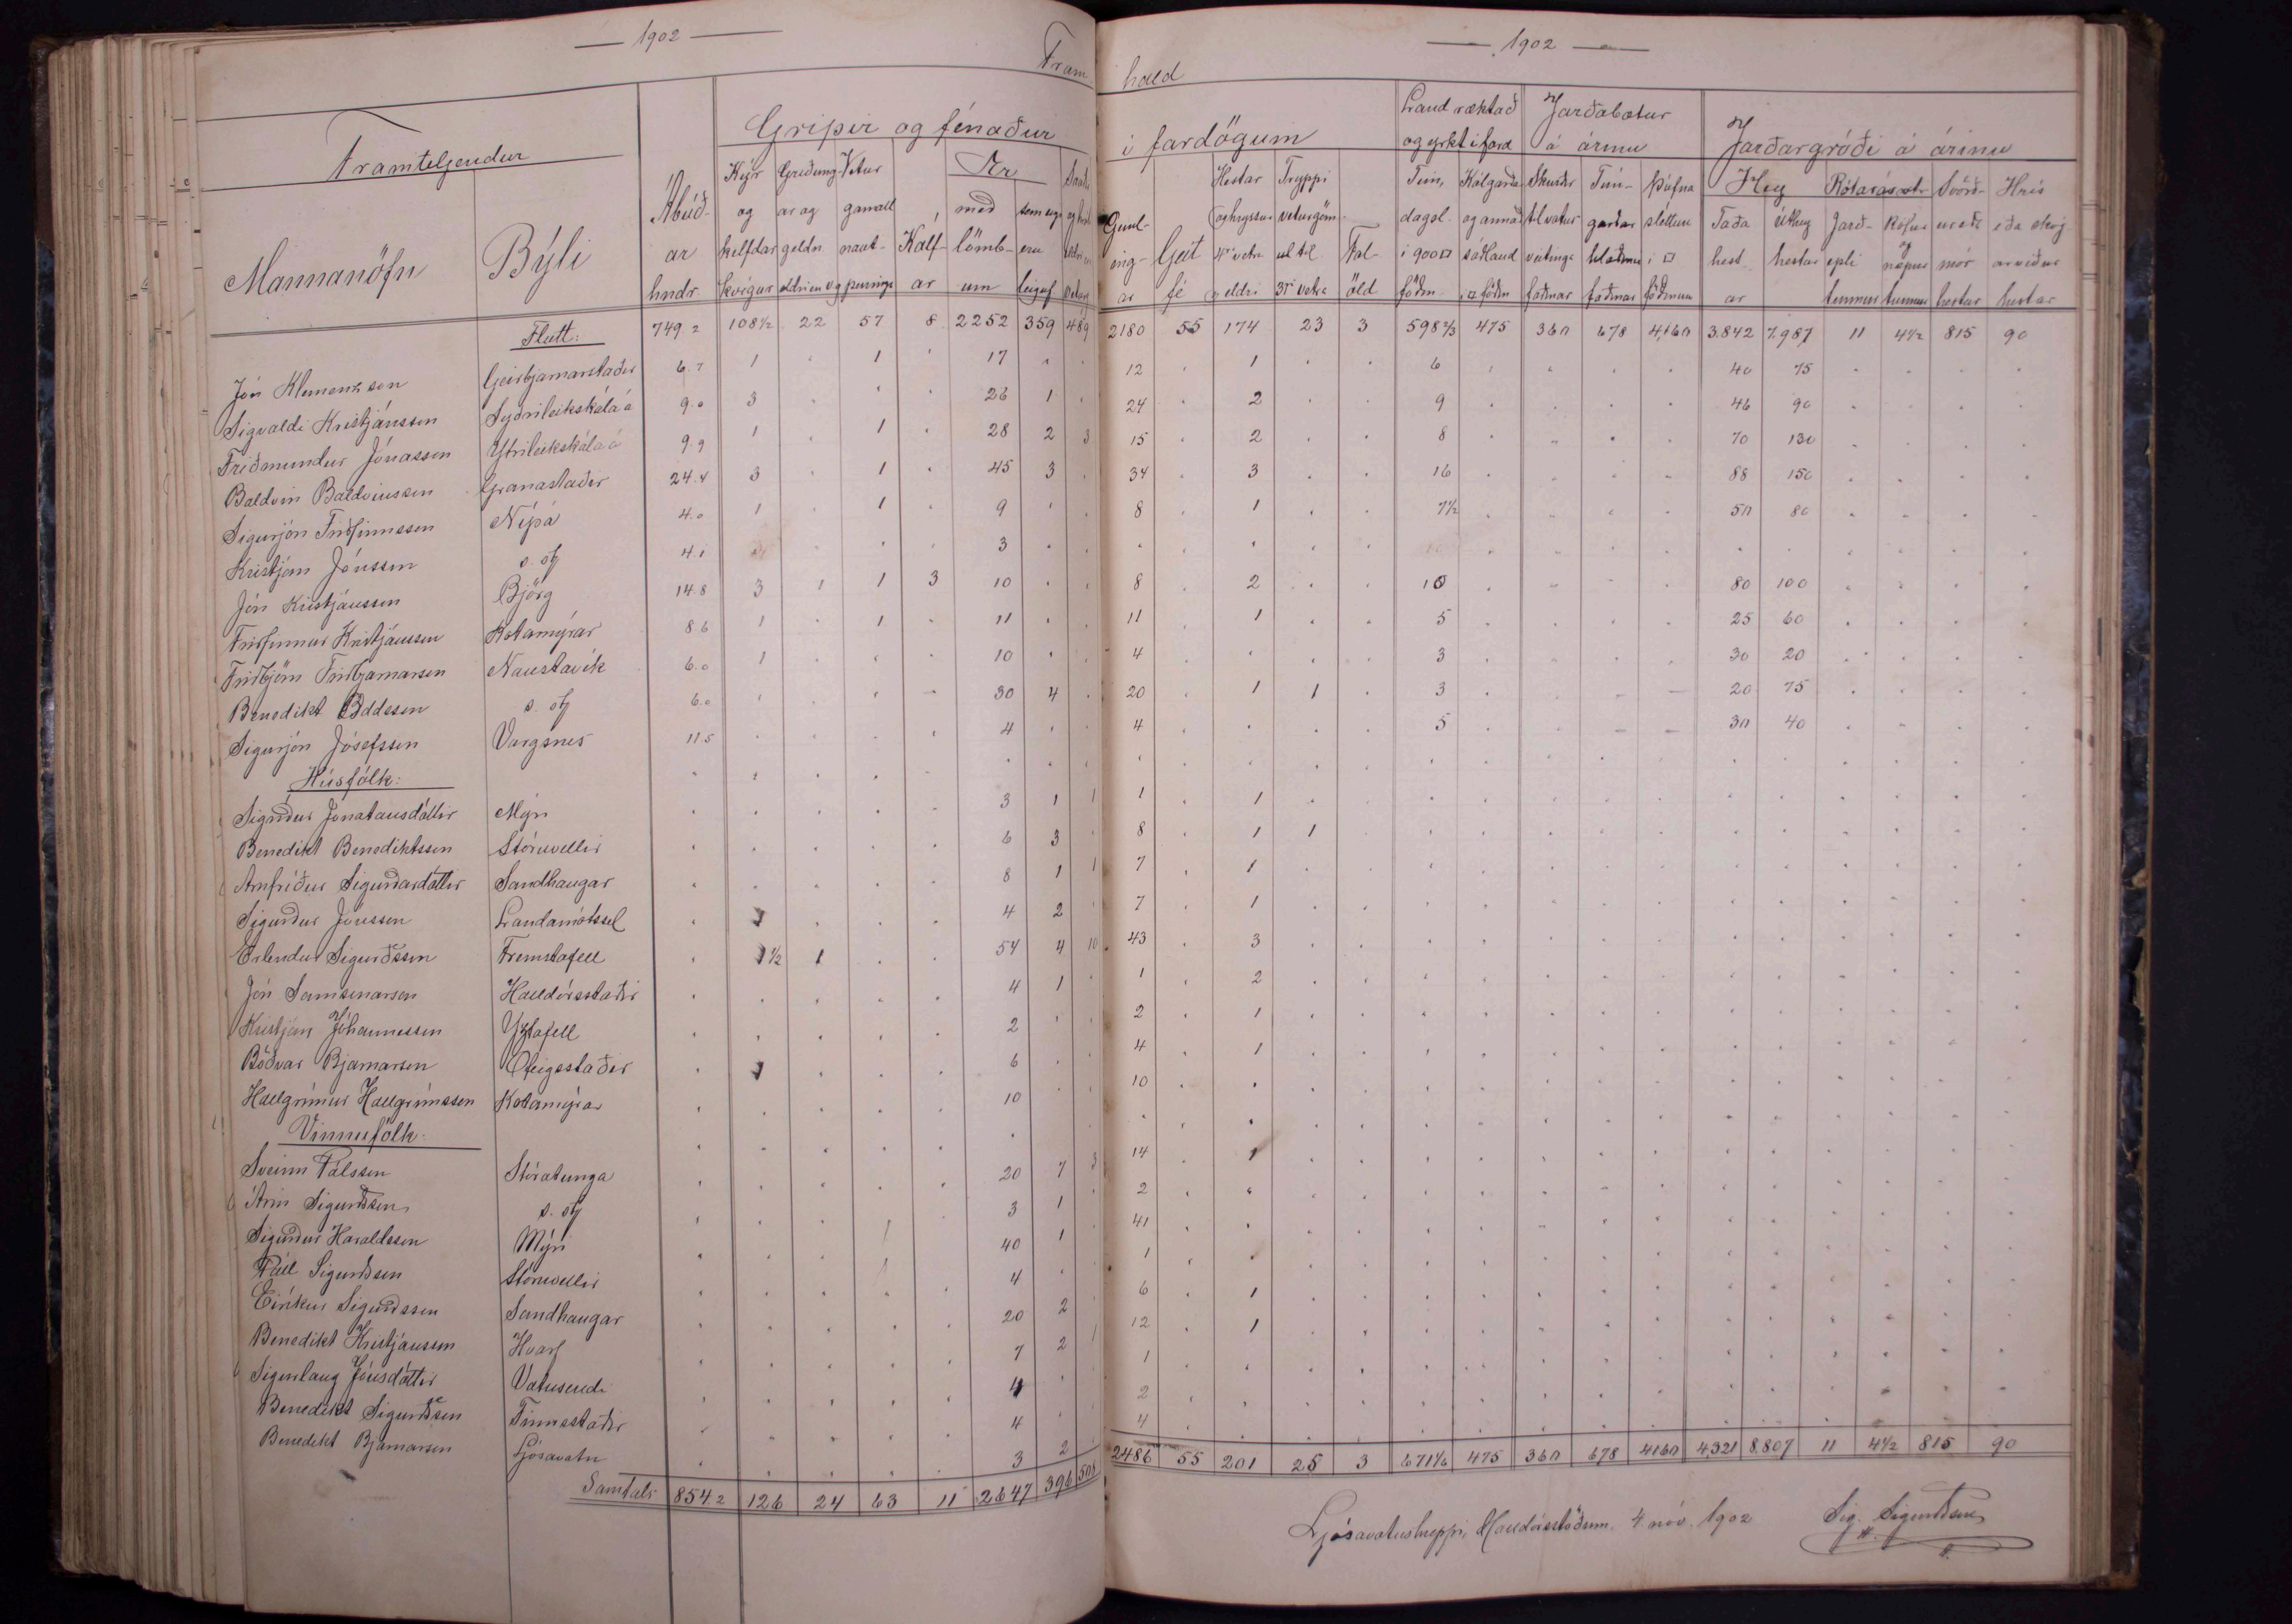 — 1902 —
Fram
Framteljendur
Gripir og fénaður
Mannanöfn
Býli
Ábúð-
ar
hndr.
Kýr
og
kelfdar
kvígur
Griðung
ar og
geldn.
Vetur
gamall
naut-
peningr
Kálf-
ar
Ær
með
lömb-
um
Flutt: 749.2 108½ 22 57 8 2252 359 489
Jón Klemenzson Geirbjarnarstaðir 6.7 1 " 1 " 17 " "
Sigvaldi Kristjánsson Syðrileikskálaá 9.0 3 " " " 26 1 "
Friðmundur Jónasson Ytrileikskálaá 9.9 1 " 1 " 28 2 3
Baldvin Baldvinsson Granastaðir 24.4 3 " 1 " 45 3 "
Sigurjón Friðfinnsson Nípá 4.0 1 " 1 " 9 " "
Kristján Jónsson s. st 4.1 " " " 3 " "
Jón Kristjánsson Björg 14.8 3 1 1 3 10 " "
Friðfinnur Kristjánsson Kotamýrar 8.6 1 " 1 " 11 " "
Friðbjörn Friðbjarnarson Naustavík 6.0 1 " " " 10 " "
Benedikt Oddsson s. st 6.0 " " " " 30 4 "
Sigurjón Jósefsson Vargsnes 11.5 " " " " 4 " "
Húsfólk:
Sigríður Jónatansdóttir Mýri " " " " " 3 1 1
Benedikt Benediktsson Stóruvellir " " " " " 6 3 "
Arnfríður Sigurðardóttir Sandhaugar " " " " " 8 1 1
Sigurður Jónsson Landamótssel " 1 " " " 4 2 "
Erlendur Sigurðsson Fremstafell " 1½ 1 " " 54 4 10
Jón Samsonarson Halldórsstaðir " " " " " 4 1 "
Kristján Jóhannesson Yztafell " " " " " 2 " "
Böðvar Bjarnarson Ófeigsstaðir " 1 " " " 6 " "
Hallgrímur Hallgrímsson Kotamýrar " " " " " 10 " "
Vinnufólk:
Sveinn Pálsson Stóratunga " " " " " 20 7 3
Árni Sigurðsson s. st " " " " " 3 1 "
Sigurður Haraldsson Mýri " " " " " 40 1 "
Páll Sigurðsson Stóruvellir " " " " " 4 " "
Eiríkur Sigurðsson Sandhaugar " " " " " 20 2 "
Benedikt Kristjánsson Hvarf " " " " " 7 2 1
Sigurlaug Jónsdóttir Vatnsendi " " " " " 4 " "
Benedikt Sigurðsson Finnsstaðir " " " " " 4 " "
Benedikt Bjarnarson Ljósavatn " " " " " 3 2 "
Samtals 854.2 126 24 63 11 2647 396 508
— 1902 —
hald
í fardögum
Land ræktað
og yrkt í fard
Jarðabætur
á árinu
Jarðargróði á árinu
Geml-
ing-
ar
Geit
fé
Hestar
og hryssur
4ra vetra
og eldri
Tryppi
veturgöm-
ul til
3ja vetra
Fol-
öld
Tún,
dagsl.
í 900 □
föðm
Kálgarðar
og annað
sáðland
í □ föðm
Skurðir
til vatns
veitinga
faðmar
Tún-
garðar
hlaðnir
faðmar
Þúfna
sléttun
í □
föðmum
Hey
Taða
hest
ar
Úthey
hestar
Rótarávextir
Jarð-
epli
tunnur
Rófur
og
næpur
tunnur
Svörð-
ur eða
mór
hestar
Hrís
eða skóg
arviður
hestar
2180 55 174 23 3 598⅔ 475 360 678 4,160 3.842 7.987 11 4½ 815 90
12 " 1 " " 6 " " " " 40 75 " " " "
24 " 2 " " 9 " " " " 46 90 " " " "
15 " 2 " " 8 " " " " 70 130 " " " "
34 " 3 " " 16 " " " " 88 150 " " " "
8 " 1 " " 7½ " " " " 50 80 " " " "
8 " 2 " " 10 " " " " 80 100 " " " "
11 " 1 " " 5 " " " " 25 60 " " " "
4 " " " " 3 " " " " 30 20 " " " "
20 " 1 1 " 3 " " " " 20 75 " " " "
4 " " " " 5 " " " " 30 40 " " " "
1 " 1 " "
8 " 1 1 "
7 " 1 " "
7 " 1 " "
43 " 3 " "
1 " 2 " "
2 " 1 " "
4 " 1 " "
10 " " " "
14 " 1 " "
2 " " " "
41 " " " "
1 " " " "
6 " 1 " "
12 " 1 " "
1 " " " "
2 " " " "
4 " " " "
2486 55 201 25 3 671⅙ 475 360 678 4160 4,321 8.807 11 4½ 815 90
Ljósavatnshreppi, Halldórsstöðum. 4 nóv. 1902
Sig. Sigurðsson